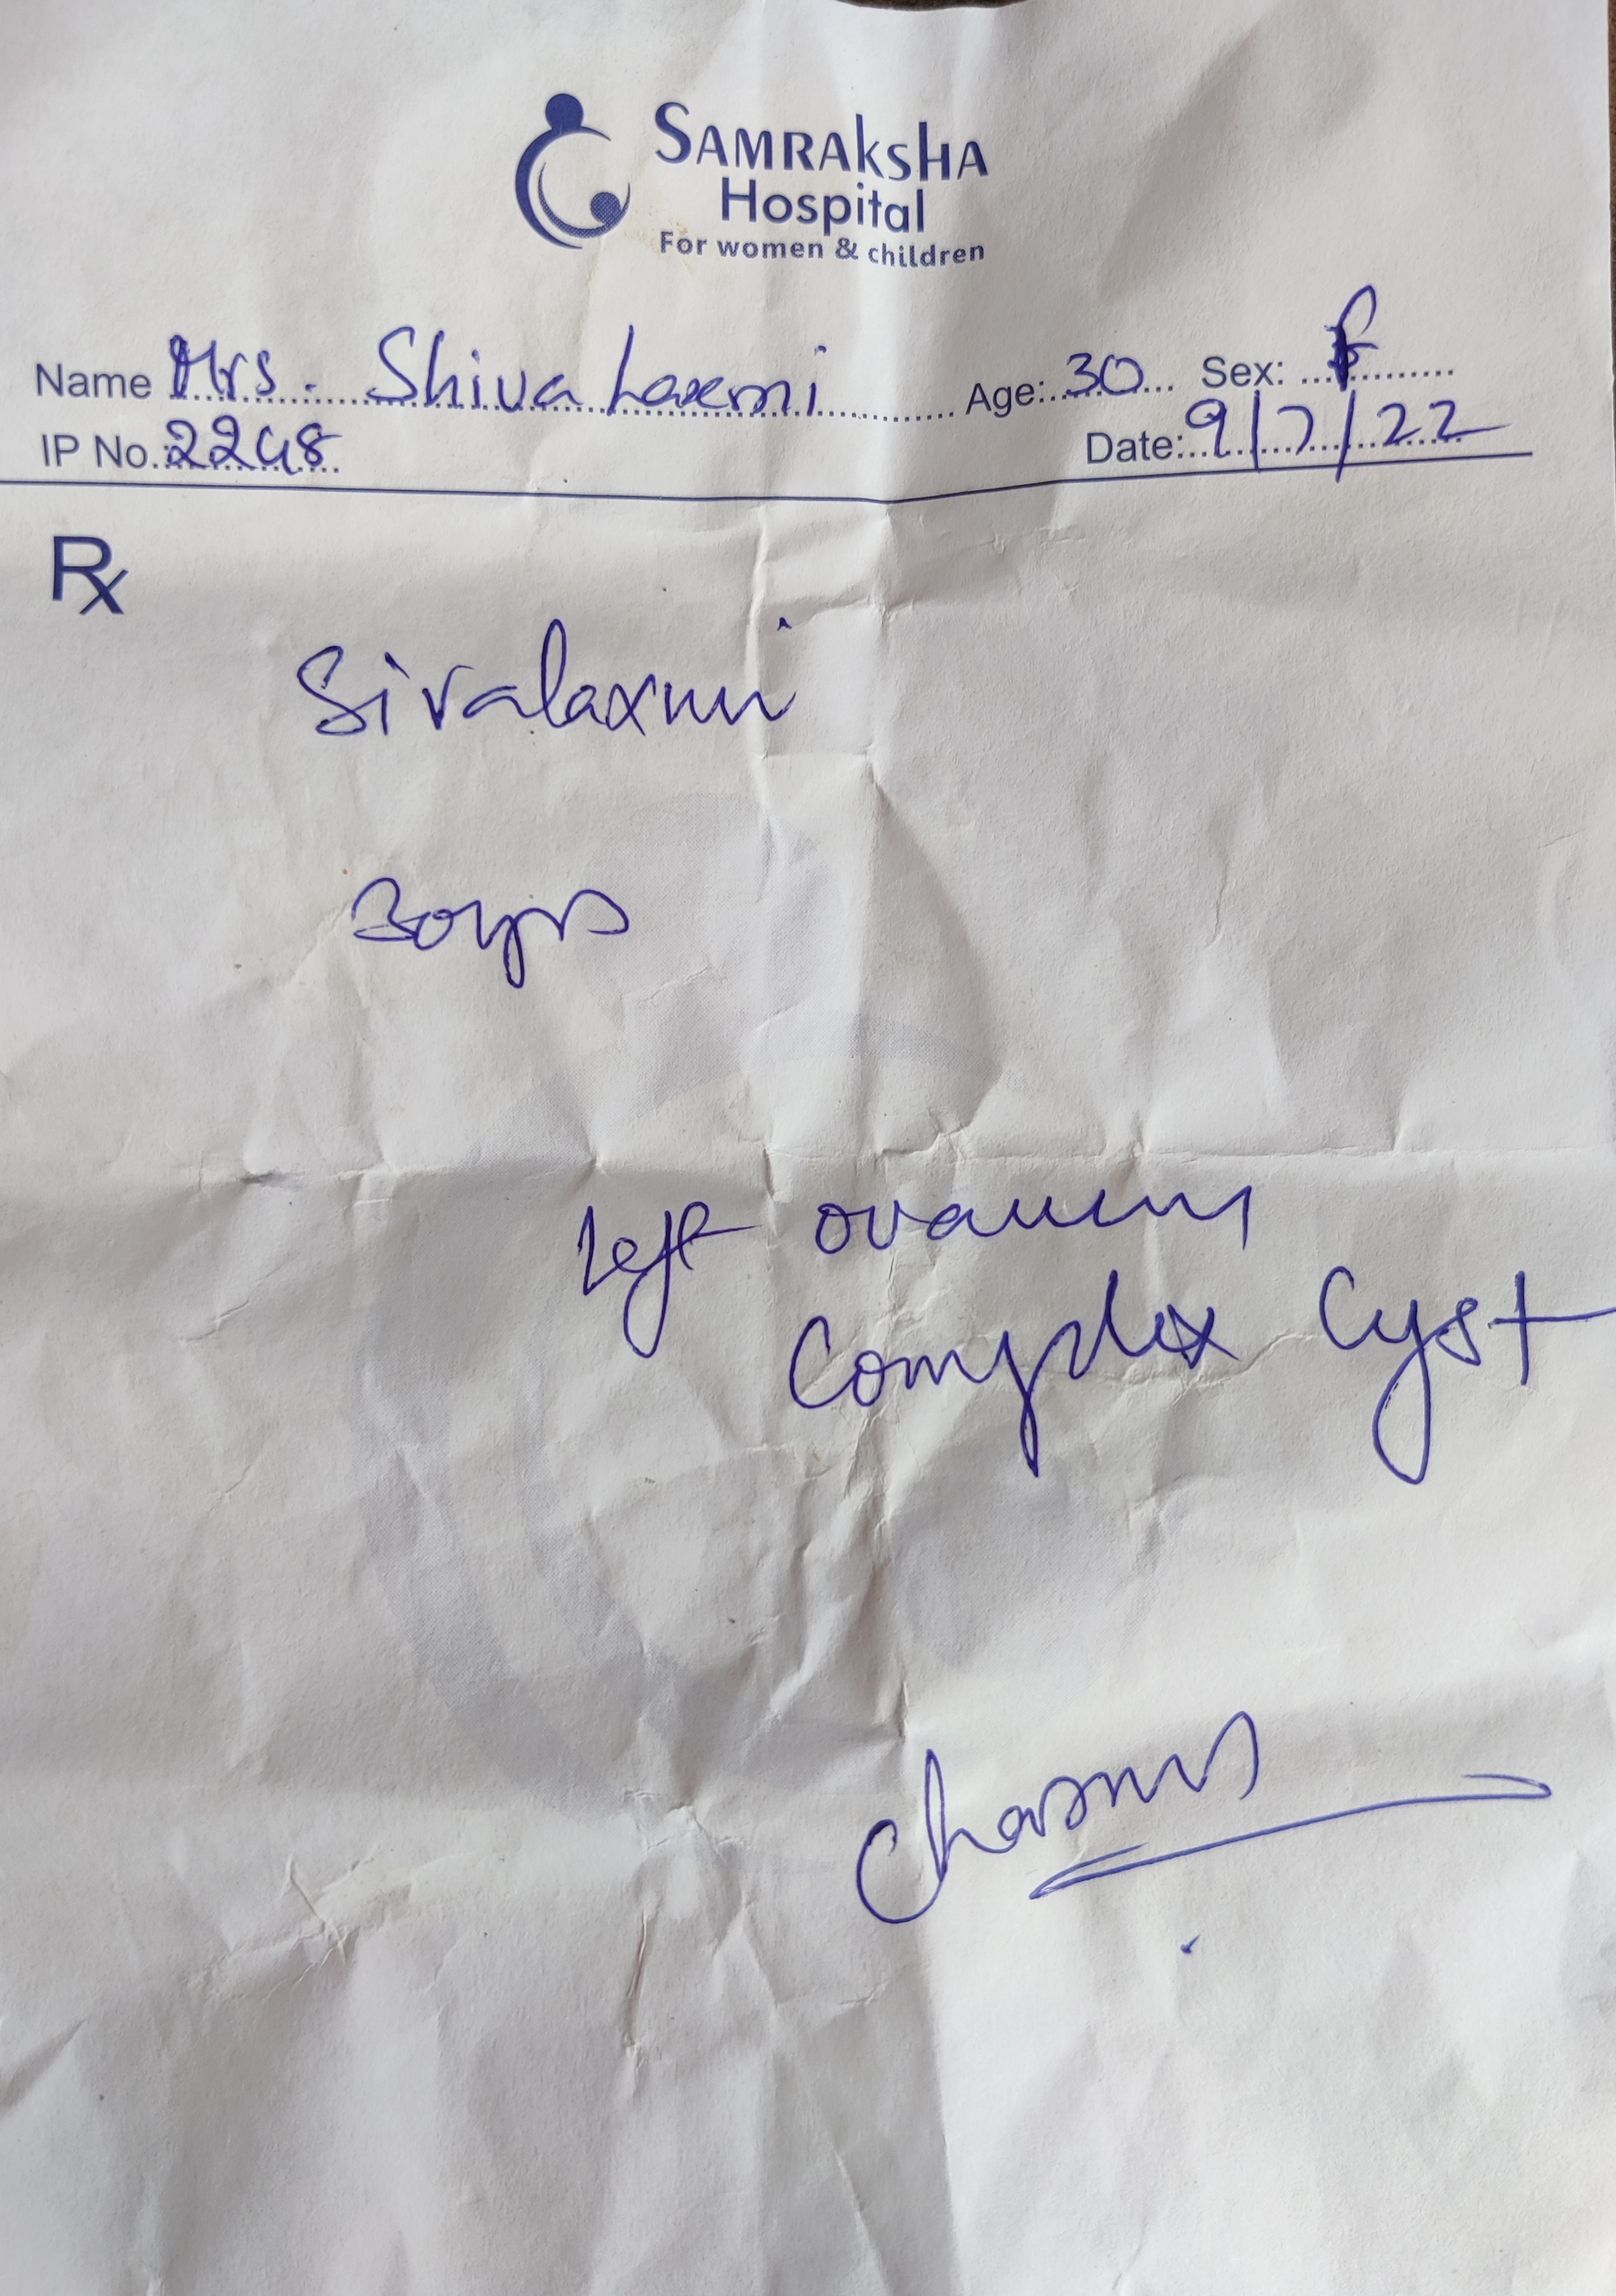 SAMRAKSHA
Hospital
For women & children
Name Mrs. Shiva Laxmi Age: 30 Sex: F
IP No. 2248 Date: 9/7/22
Rx
Sivalaxmi
30yrs
Left ovarian
Complex Cyst